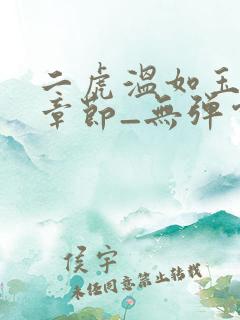 二虎溫如玉
章節_無彈
侯宇
未经同意禁止转载